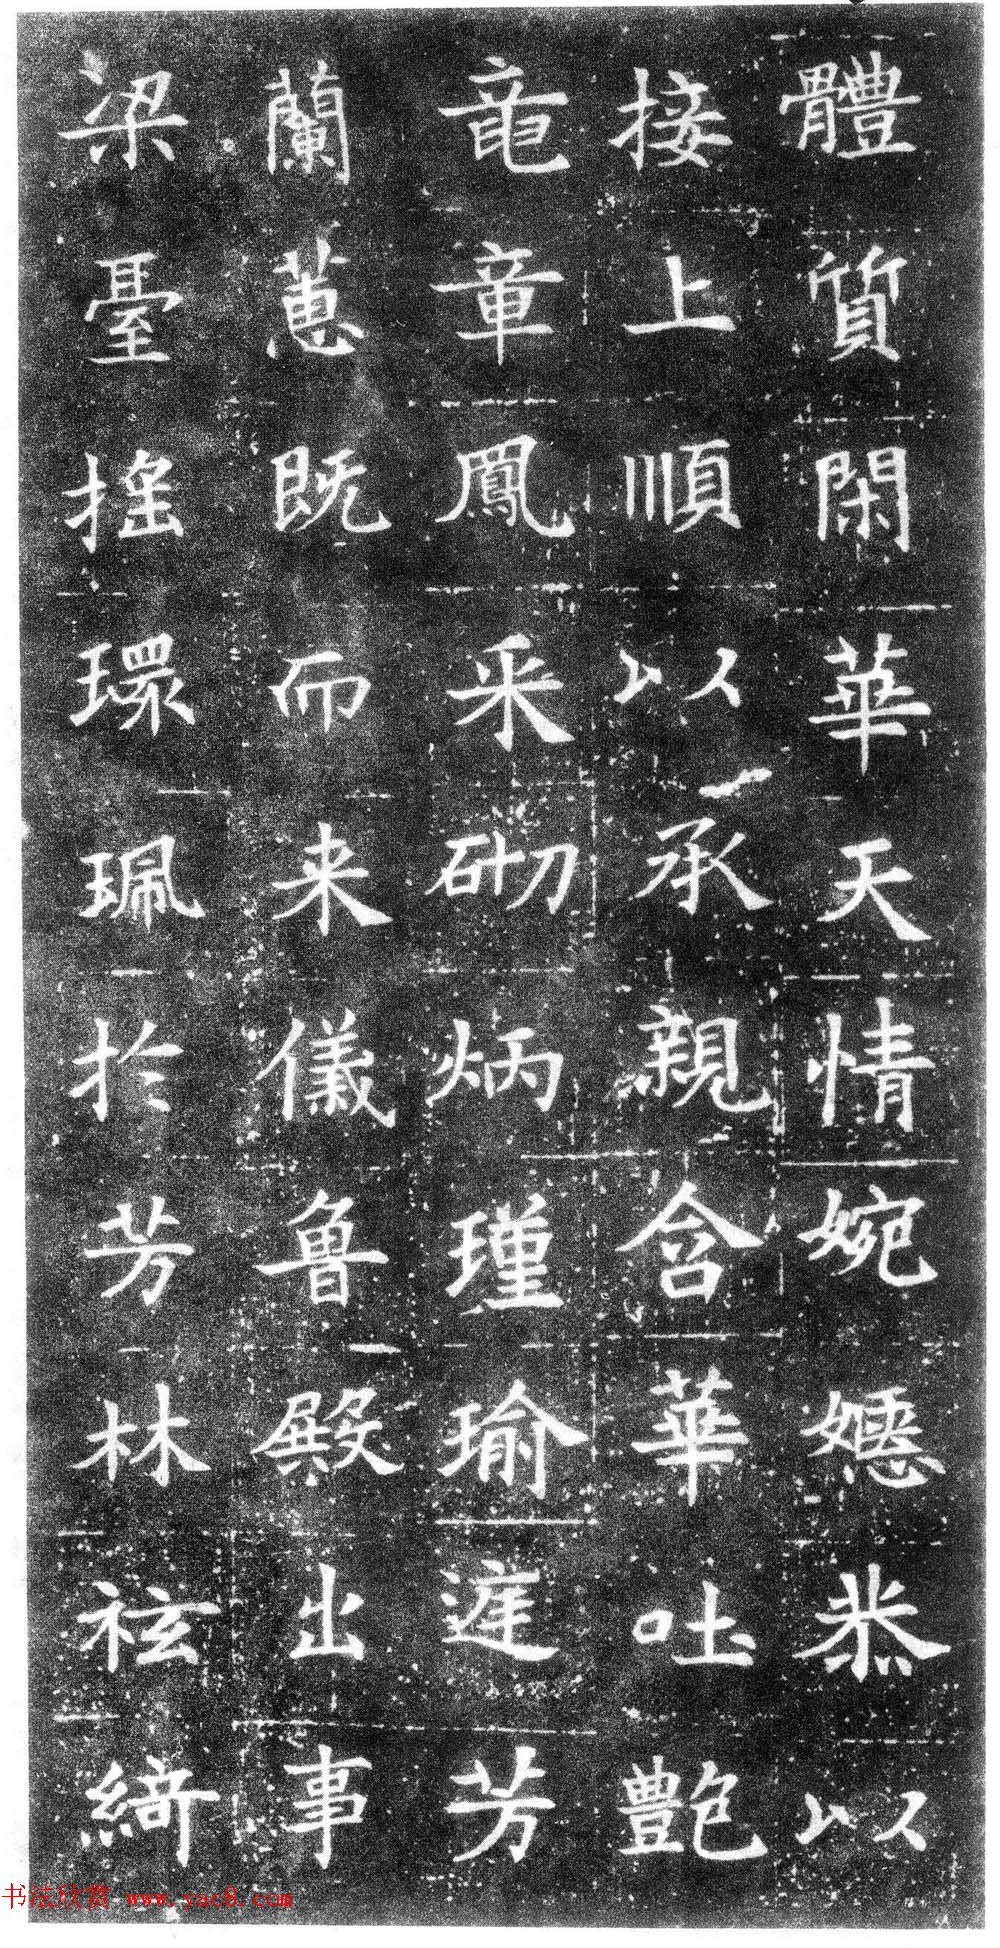 體質閑華天情婉嫕恭以
接上順以承親含華吐艷
竜章鳳采砌炳瑾瑜遲芳
蘭蕙既而来儀魯殿出事
梁臺搖環珮於芳林袨綺
书法欣赏 www.yac8.com